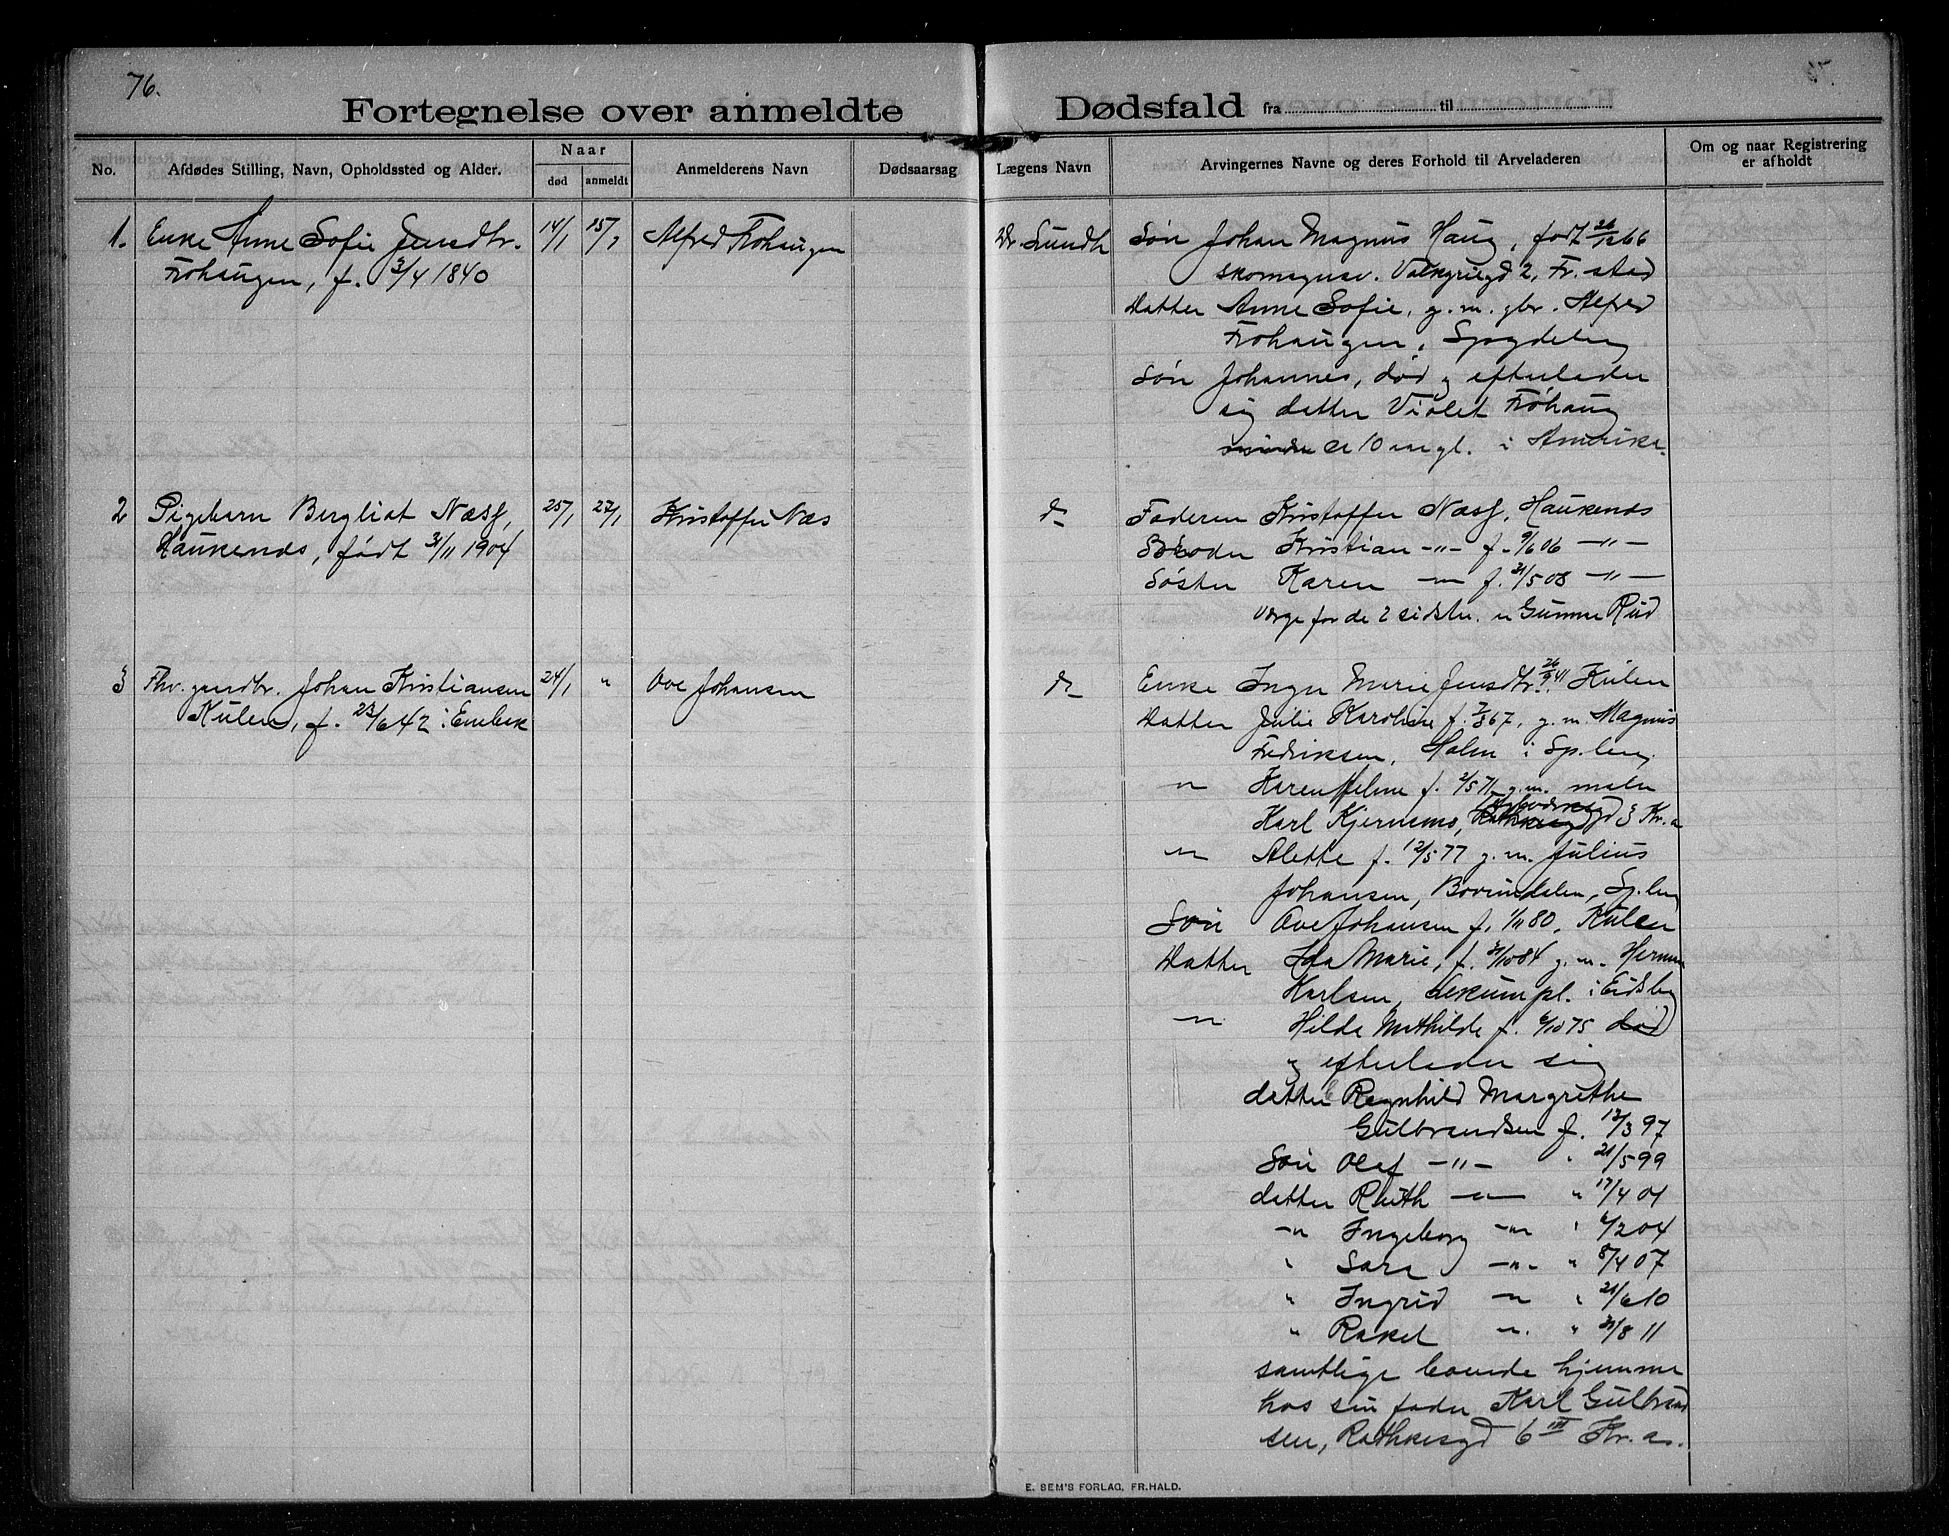 76.
Fortegnelse over anmeldte Dødsfald fra til
No.
Afdødes Stilling, Navn, Opholdssted og Alder.
Naar
død
anmeldt
Anmelderens Navn
Dødsaarsag
Lægens Navn
Arvingernes Navne og deres Forhold til Arveladeren
Om og naar Registrering
er afholdt
1.
Enke Anne Sofie Jensdtr.
Frøhaugen, f. 3/4 1840
14/1
15/1
Alfred Frøhaugen
Dr. Lundh
Søn Johan Magnus Haug, født 26/12 66
skomagersv. 2, Fr.stad
Datter Anne Sofie, g.m. gbr. Alfred
Frøhaugen, Spydeberg
Søn Johannes, død og efterlader
sig datter Violet Frøhaug
ca 10 aar gl. i Amerika.
2
Pigebarn Bergliot Næss,
Haukenæs, født 3/11 1904
25/1
27/1
Kristoffer Næs
do
Faderen Kristoffer Næss, Haukenæs
Broder Kristian -"- f. 9/6 06 -"-
Søster Karen -"- f. 31/5 08 -"-
Værge for de 2 sidste er Gunnar Rud
3
Fhv. gaardbr. Johan Kristiansen
Kulen, f. 23/6 42 i Enebak
24/1
"
Ove Johansen
do
Enke Inger Marie Jensdtr. f. 26/9 41 Kulen
Datter Julie Karoline f. 7/8 67, g.m. Magnus
Fredriksen, Holm i Sp.berg
-"- Karen Helme f. 2/5 71 g.m. maler
Karl Kjernemo, 3 Kr.a
-"- Alette f. 12/5 77 g.m. Julius
Johansen, Bovimdalen, Sp.berg
Søn Ove Johansen f. 1/11 80, Kulen
Datter Ida Marie, f. 31/10 84 g.m. Herman
Karlsen, i Eidsberg
-"- Hilda Mathilde f. 6/10 75 død
og efterlader sig
datter Ragnhild Margrethe
Gulbrandsen f. 12/3 97
Søn Olaf -"- " 21/5 99
datter Ruth -"- " 17/4 01
-"- Ingeborg -"- " 6/2 04
" Sara -"- " 8/4 07
" Ingrid -"- " 21/6 10
" Rakel -"- " 31/8 11
samtlige boende hjemme
hos sin fader Karl Gulbrand
sen, Rathkesgd 6 III Kr.a.
E. SEM'S FORLAG, FR.HALD.